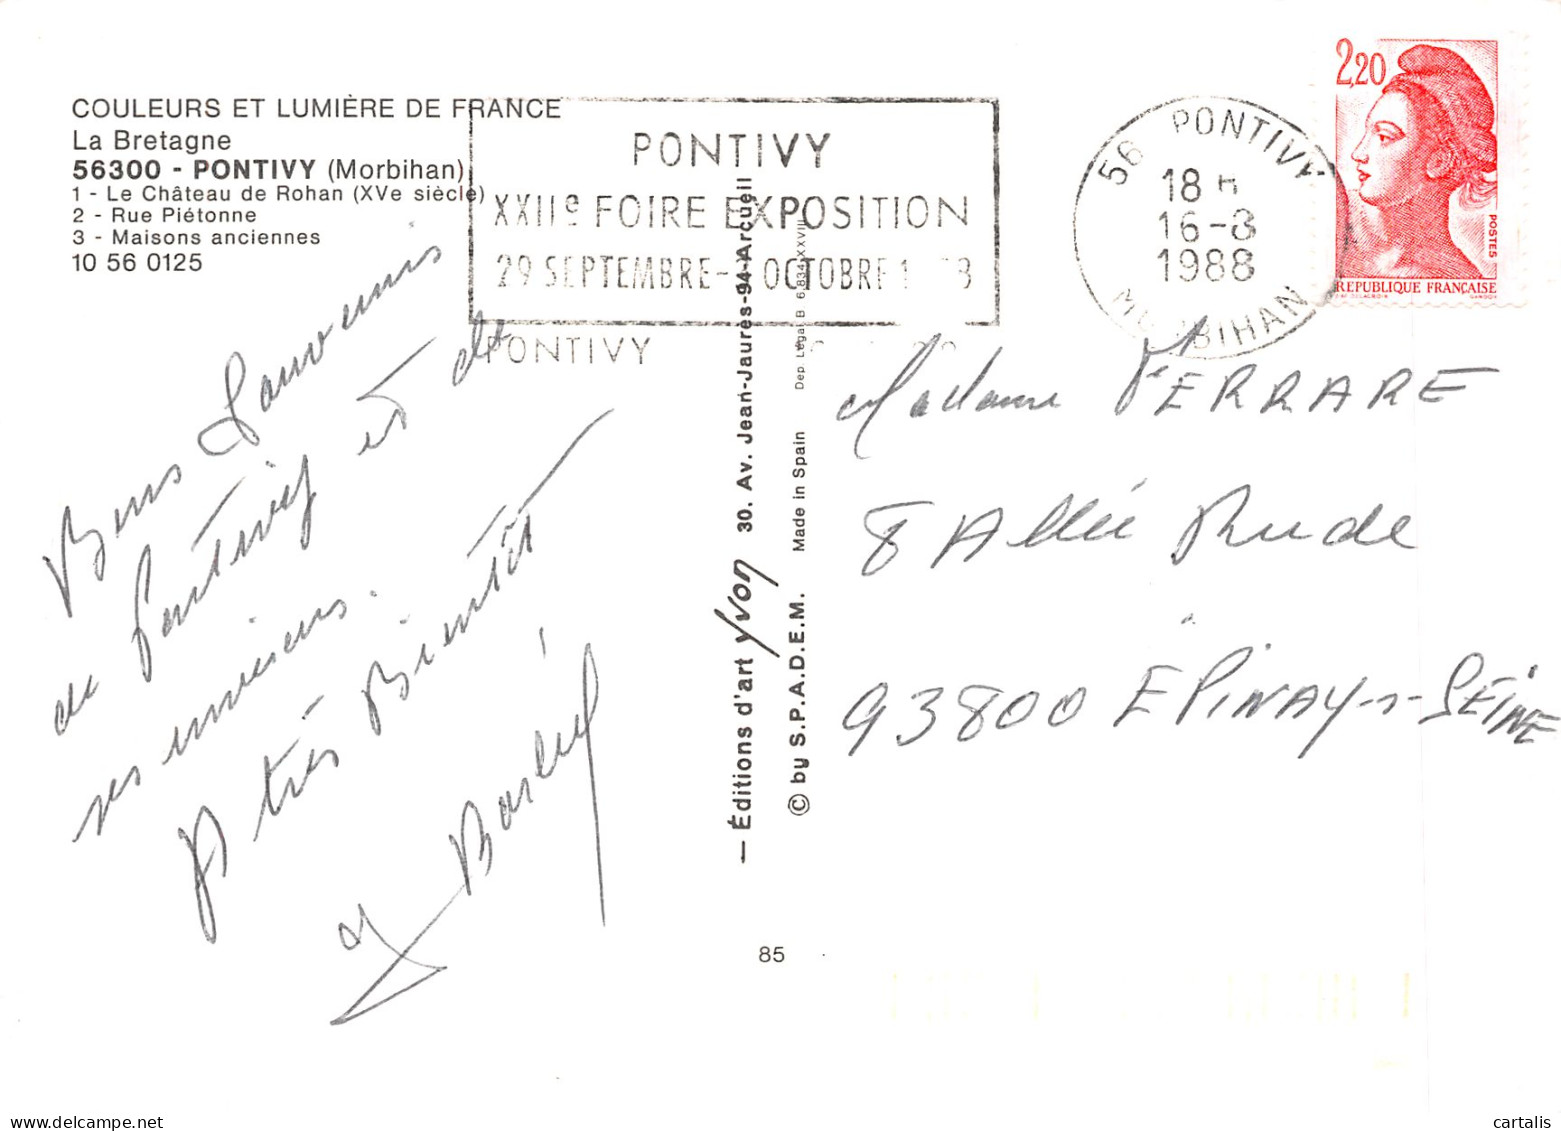 COULEURS ET LUMIÈRE DE FRANCE
La Bretagne
56300 - PONTIVY (Morbihan)
1 - Le Château de Rohan (XVe siècle)
2 - Rue Piétonne
3 - Maisons anciennes
10 56 0125
PONTIVY
XXIIe FOIRE EXPOSITION
29 SEPTEMBRE- OCTOBRE 1 8
PONTIVY
56 PONTIVY
18 H
16-8
1988
MORBIHAN
2,20
POSTES
REPUBLIQUE FRANÇAISE
Bons Souvenirs
de Pontivy et de
ses environs.
A très Bientôt
— Éditions d'art Yvon 30. Av. Jean-Jaurès-94-Arcueil
© by S.P.A.D.E.M. Made in Spain Dep Légal B 6.834 XXVIII
Madame FERRARE
8 Allée Rude
93800 EPINAY-s-SEINE
85
cartalis